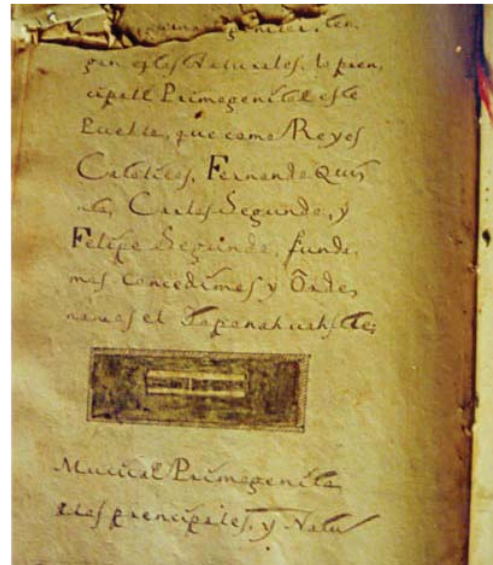 gan estos Naturales, lo prin,
cipall Primogenital este
Pueblo, que como Reyes
Catolicos, Fernando Quin
to, Carlos Segundo, y
Felipe Segundo, funda,
mos concedimos y Orde,
namos el Teponahuastle;
Mucical Primogenita
los principales, y Natu